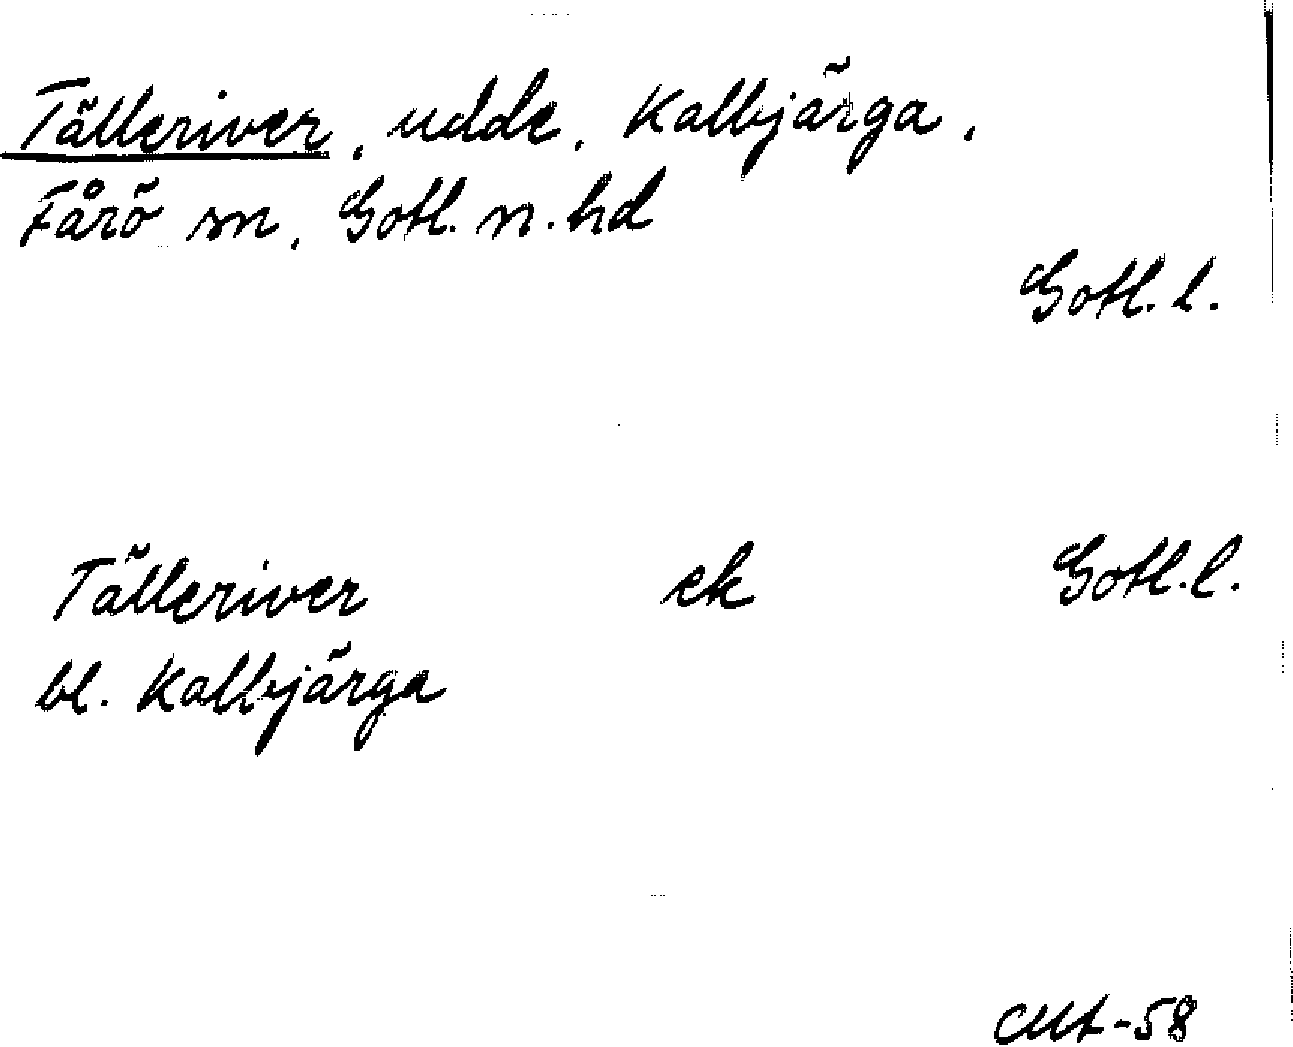 Tälleriver, udde, Kalbjärga,
Fårö sn, Gotl. n. hd
Gotl. l.
Tälleriver ek Gotl. l.
bl. Kalbjärga